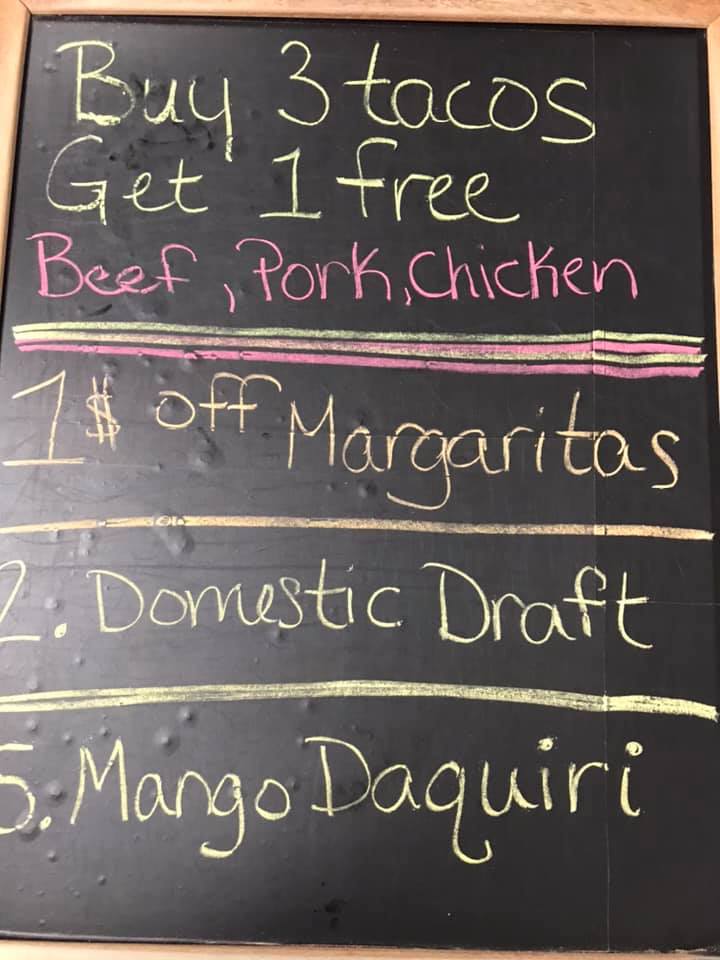 Buy 3 tacos
Get 1 free
Beef, Pork, Chicken
1$ off Margaritas
2. Domestic Draft
5. Mango Daquiri